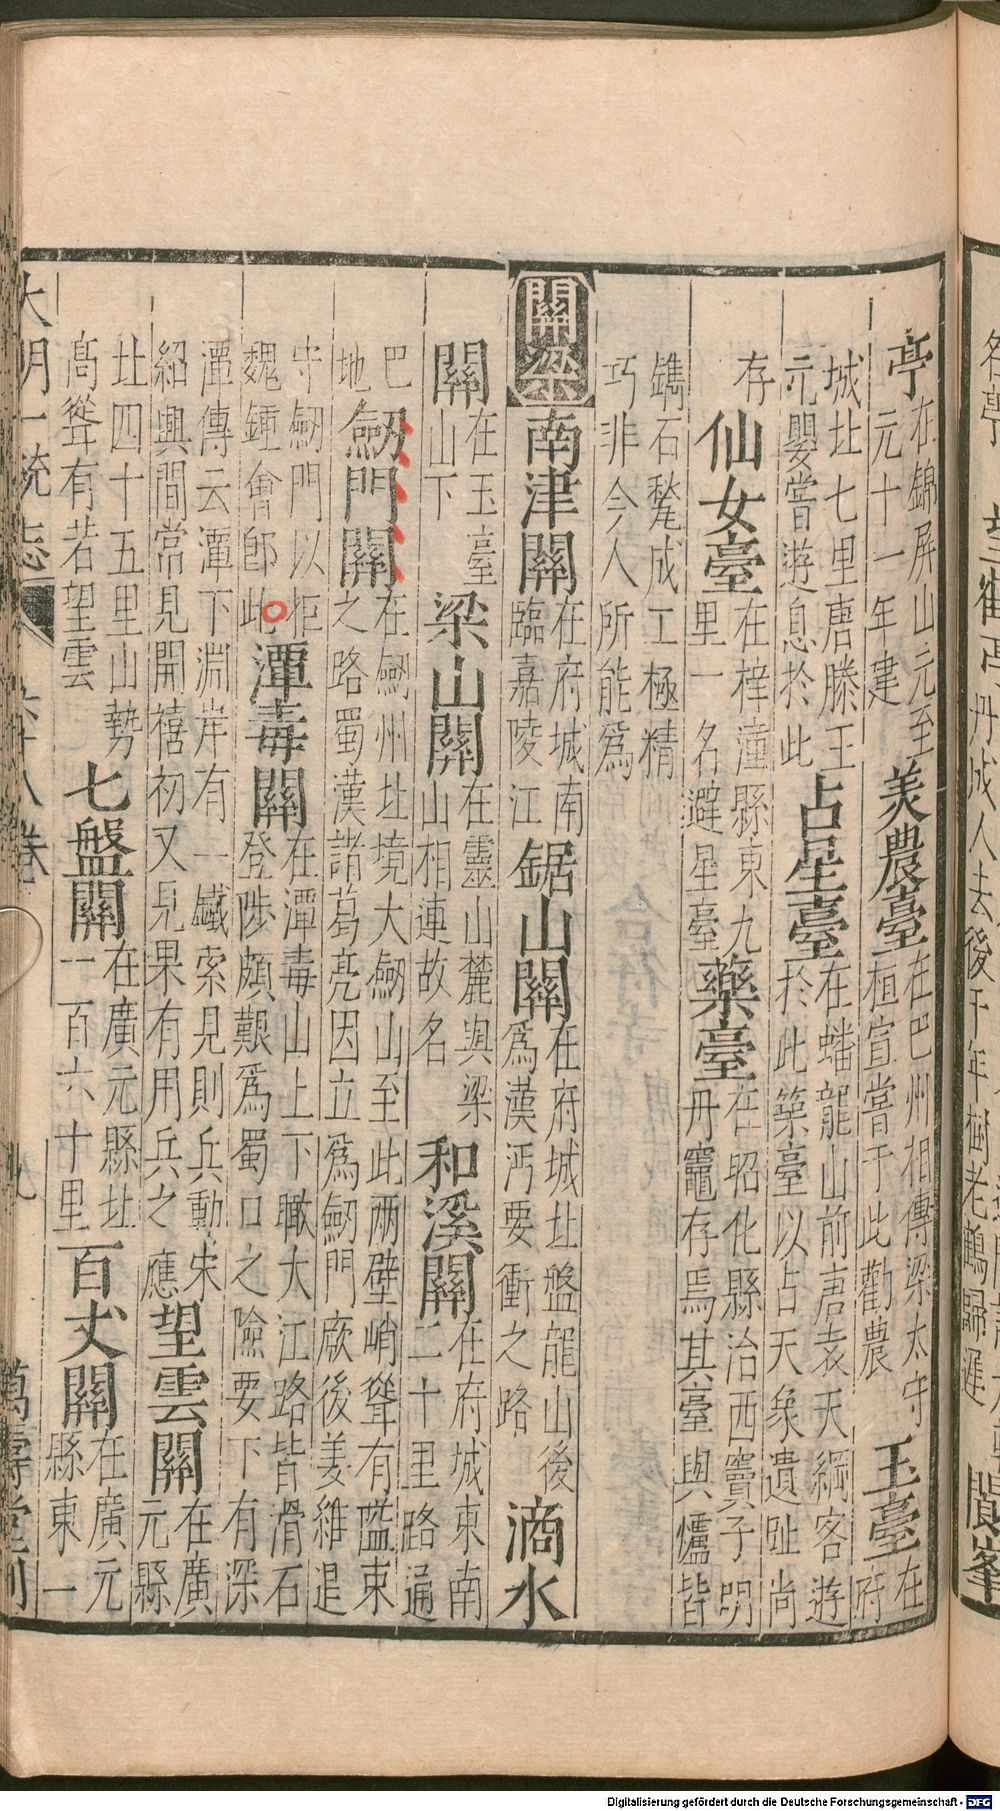 亭在錦屏山元至元十一年建
美農臺在巴州相傳梁太守桓宣嘗于此勸農
玉臺在府
城北七里唐滕王元嬰嘗遊息於此
占星臺在蟠龍山前唐袁天綱客遊於此築臺以占天象遺址尚
存
仙女臺在梓潼縣東九里一名避星臺
藥臺在昭化縣治西竇子明丹竈存焉其臺與爐皆
鐫石甃成工極精巧非今人所能為
關梁
南津關在府城南臨嘉陵江
鋸山關在府城北盤龍山後為漢沔要衝之路
滴水
關在玉臺山下
梁山關在靈山麓與梁山相連故名
和溪關在府城東南二十里路通
巴地
劒門關在劒州北境大劒山至此兩壁峭聳有隘束之路蜀漢諸葛亮因立為劒門厥後姜維退
守劒門以拒魏鍾會即此
潭毒關在潭毒山上下瞰大江路皆滑石登陟頗艱為蜀口之險要下有深
潭傳云潭下淵岸有一鐵索見則兵動宋紹興間常見開禧初又見果有用兵之應
望雲關在廣元縣
北四十五里山勢高聳有若望雲
七盤關在廣元縣北一百六十里
百丈關在廣元縣東一
大明一統志
六十八卷
九
萬壽堂刊
丹成人去後千年樹老鶴歸遲
閬峯
Digitalisierung gefördert durch die Deutsche Forschungsgemeinschaft - DFG